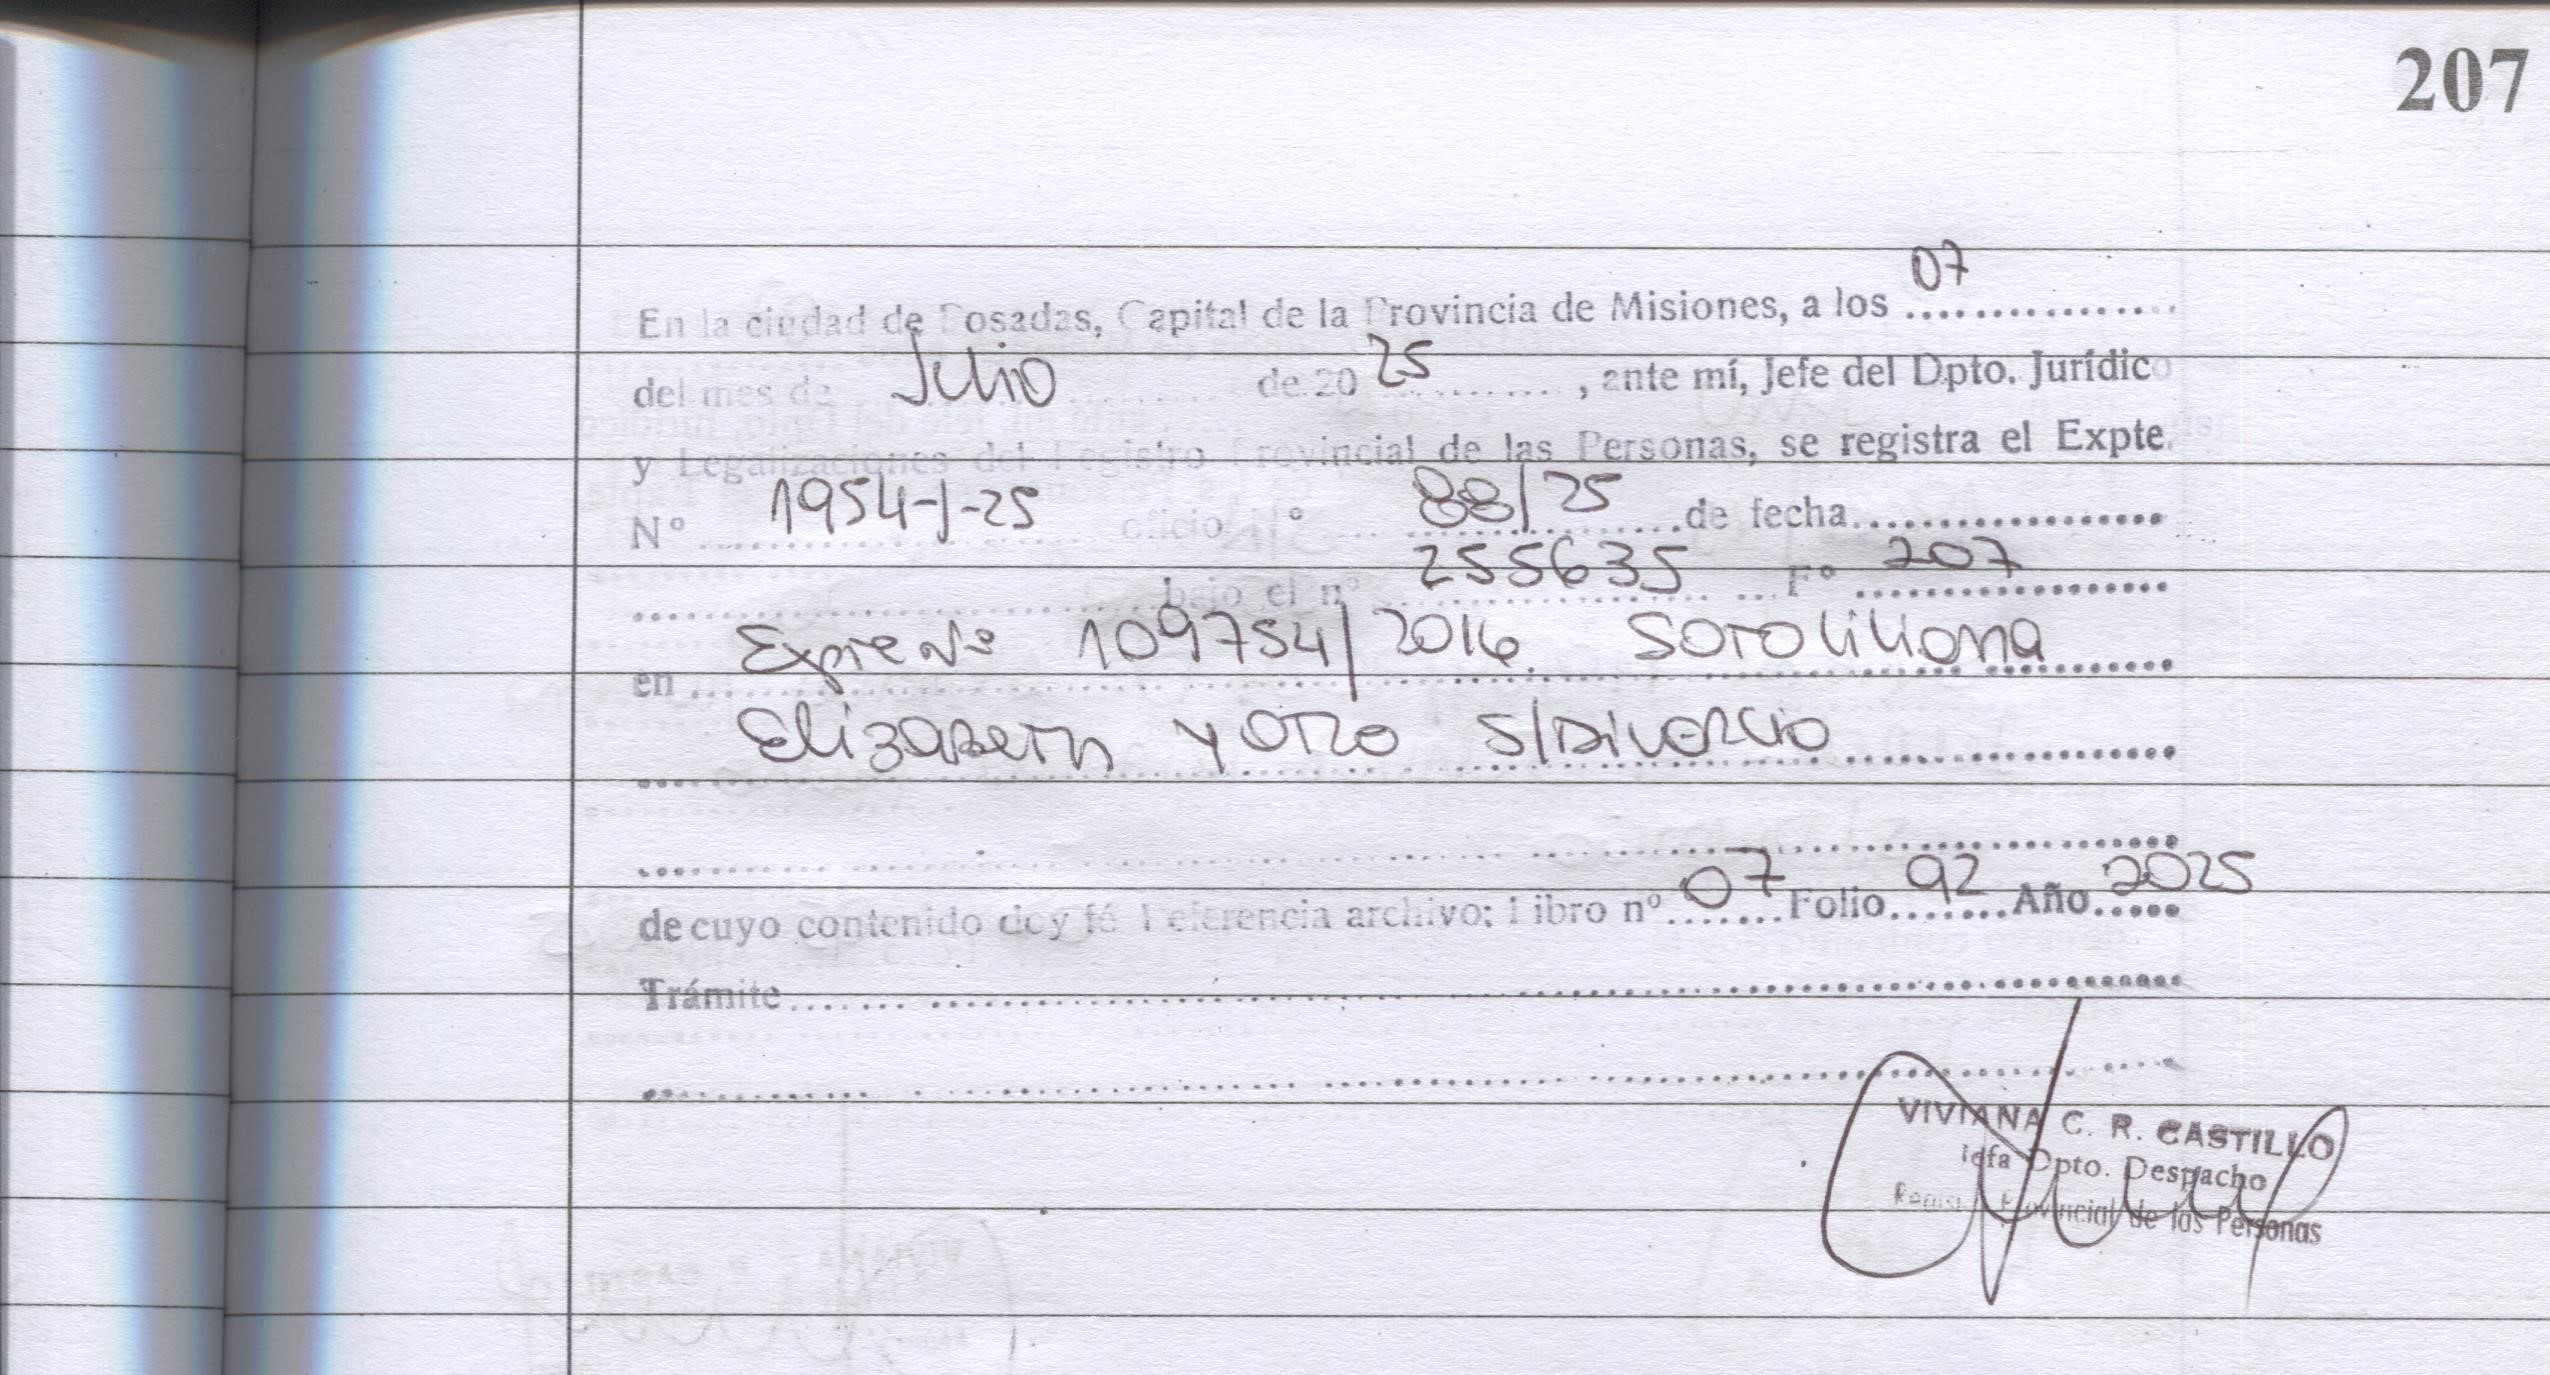 207
En la ciudad de Posadas, Capital de la Provincia de Misiones, a los 07
del mes de Julio de 20 25, ante mí, Jefe del Dpto. Jurídico
y Legalizaciones del Registro Provincial de las Personas, se registra el Expte.
Nº 1954-J-25 oficio nº 88/25 de fecha
bajo el nº 255635 Fº 207
en Expte Nº 109754/2016. Soto Liliana
Elizabeth y otro s/Divorcio
de cuyo contenido doy fé Referencia archivo: Libro nº 07 Folio 92 Año 2025
Trámite
VIVIANA C. R. CASTILLO
Jefa Dpto. Despacho
Registro Provincial de las Personas